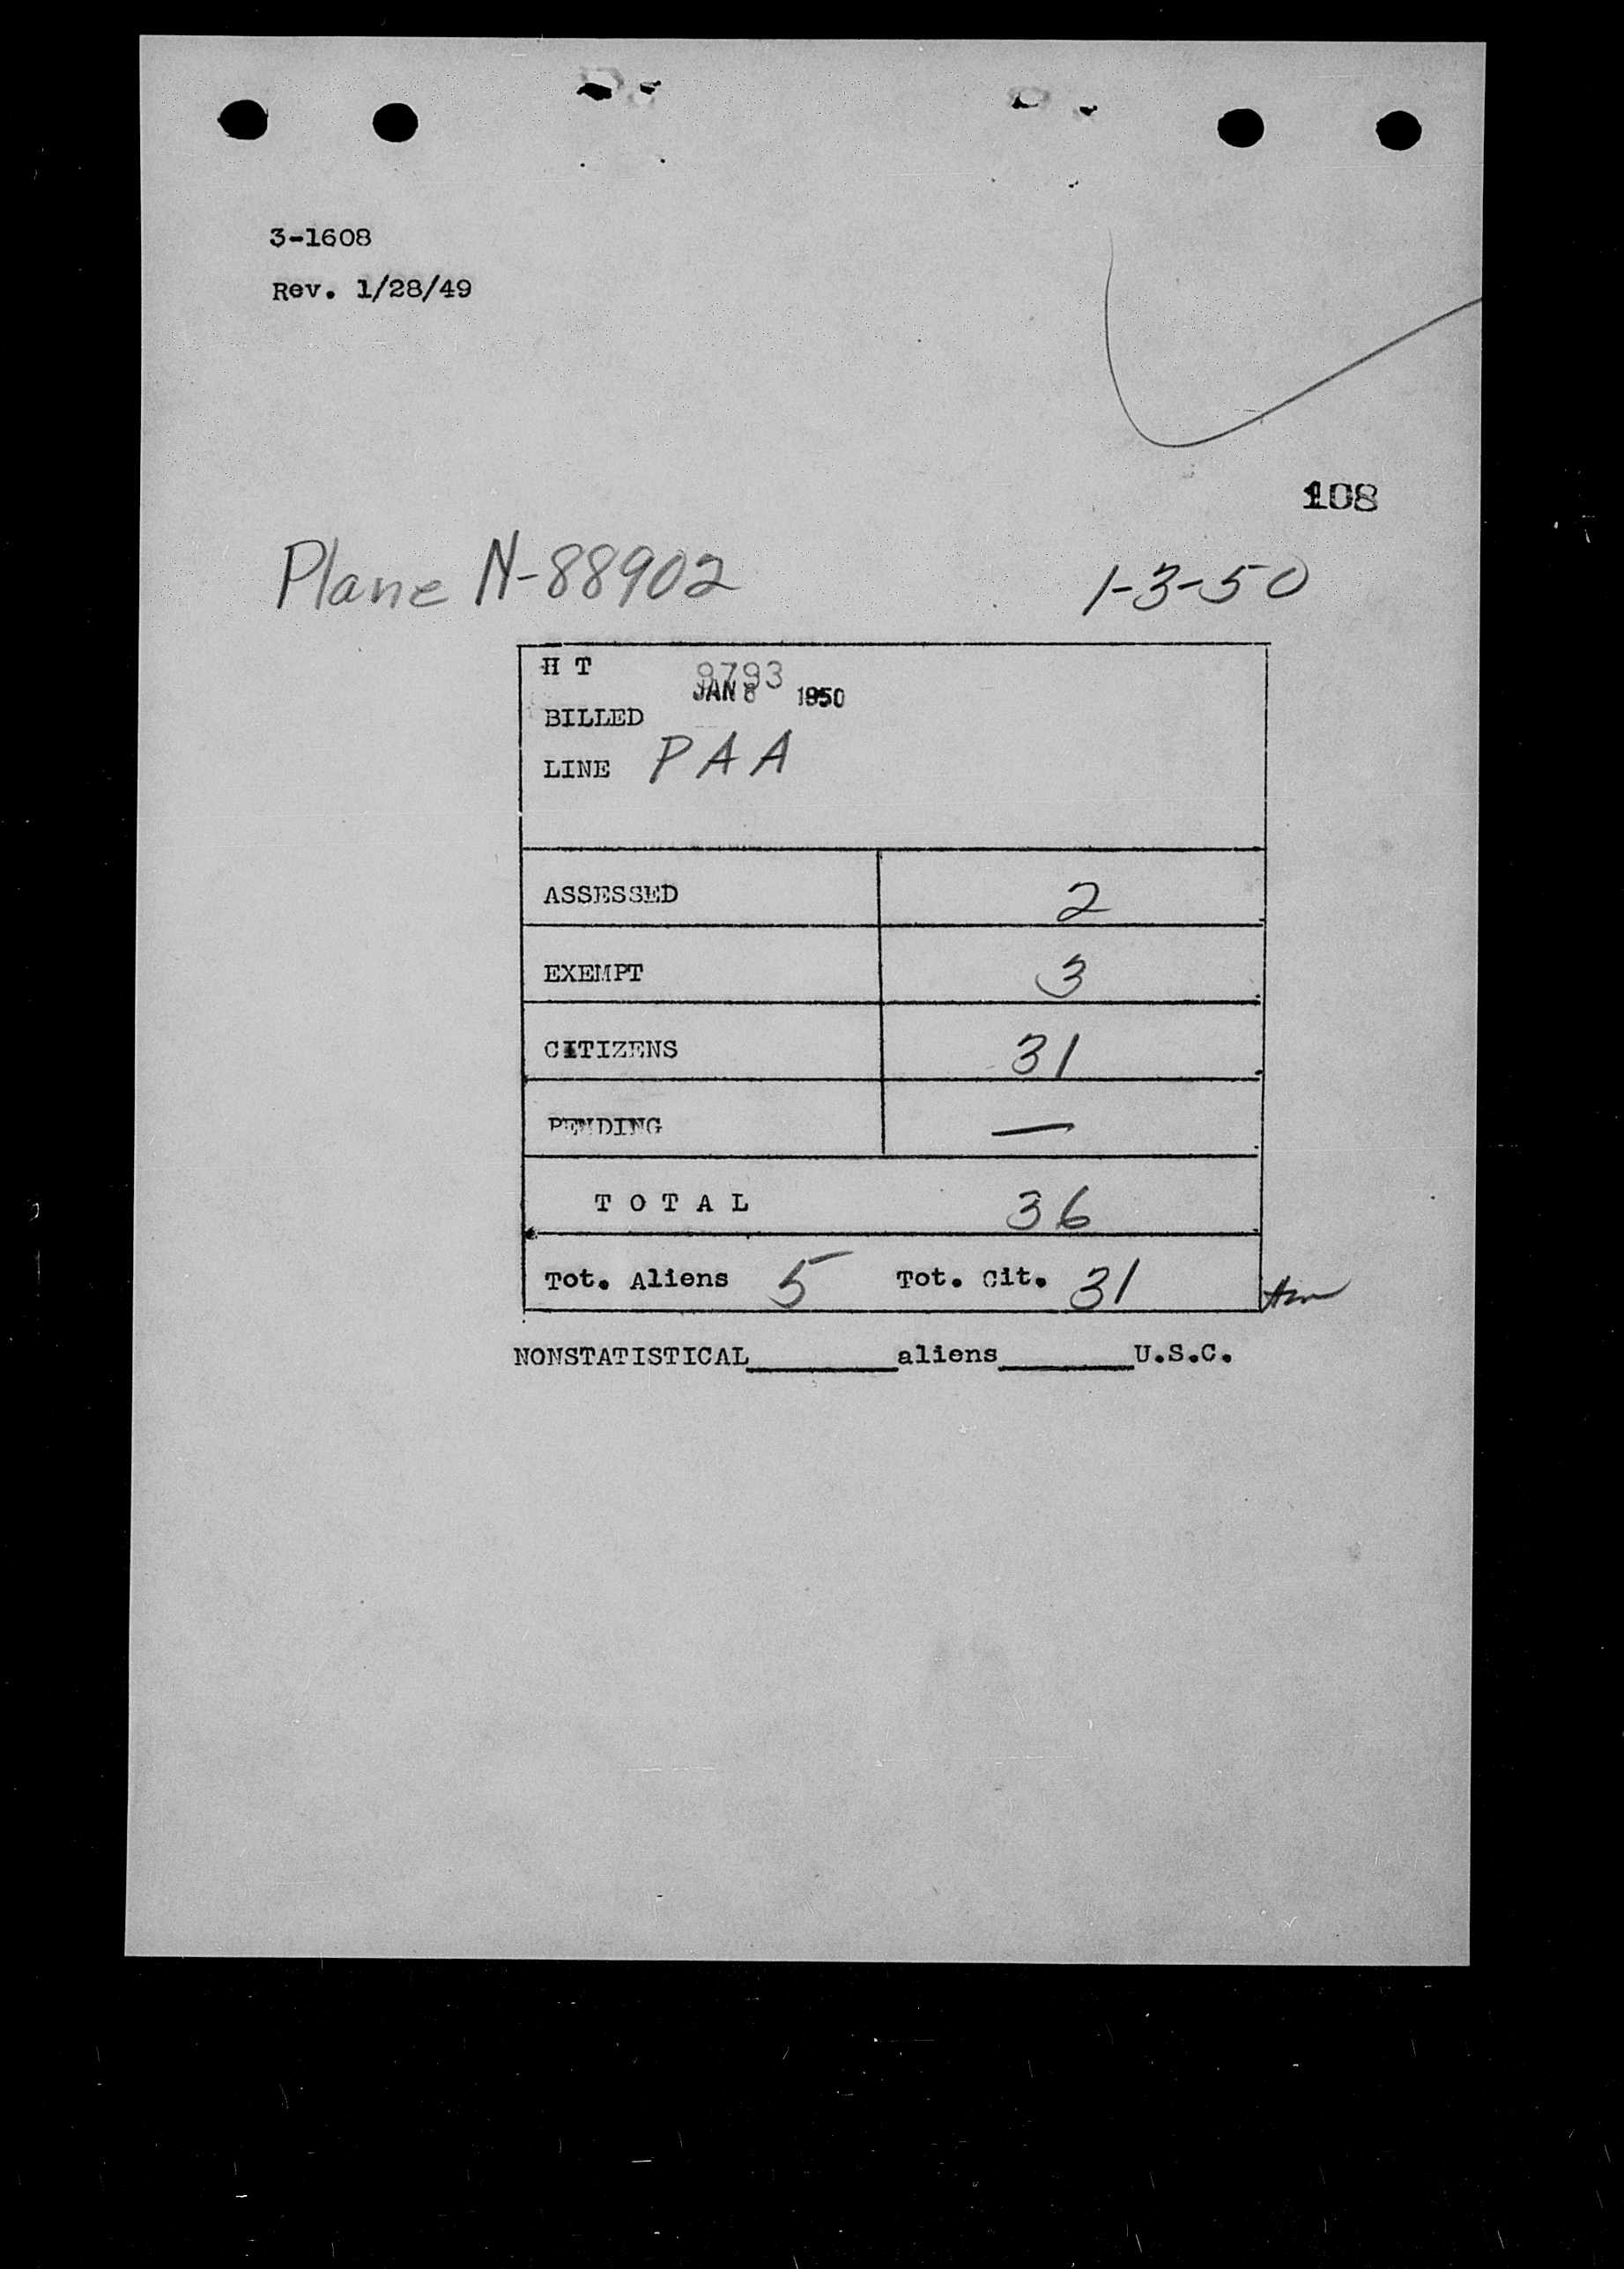 3-1608
Rev. 1/28/49
108
Plane N-88902 1-3-50
H T 9793
JAN 1950
BILLED
LINE PAA
ASSESSED 2
EXEMPT 3
CITIZENS 31
PENDING —
T O T A L 36
Tot. Aliens 5 Tot. Cit. 31
NONSTATISTICAL________aliens_______U.S.C.